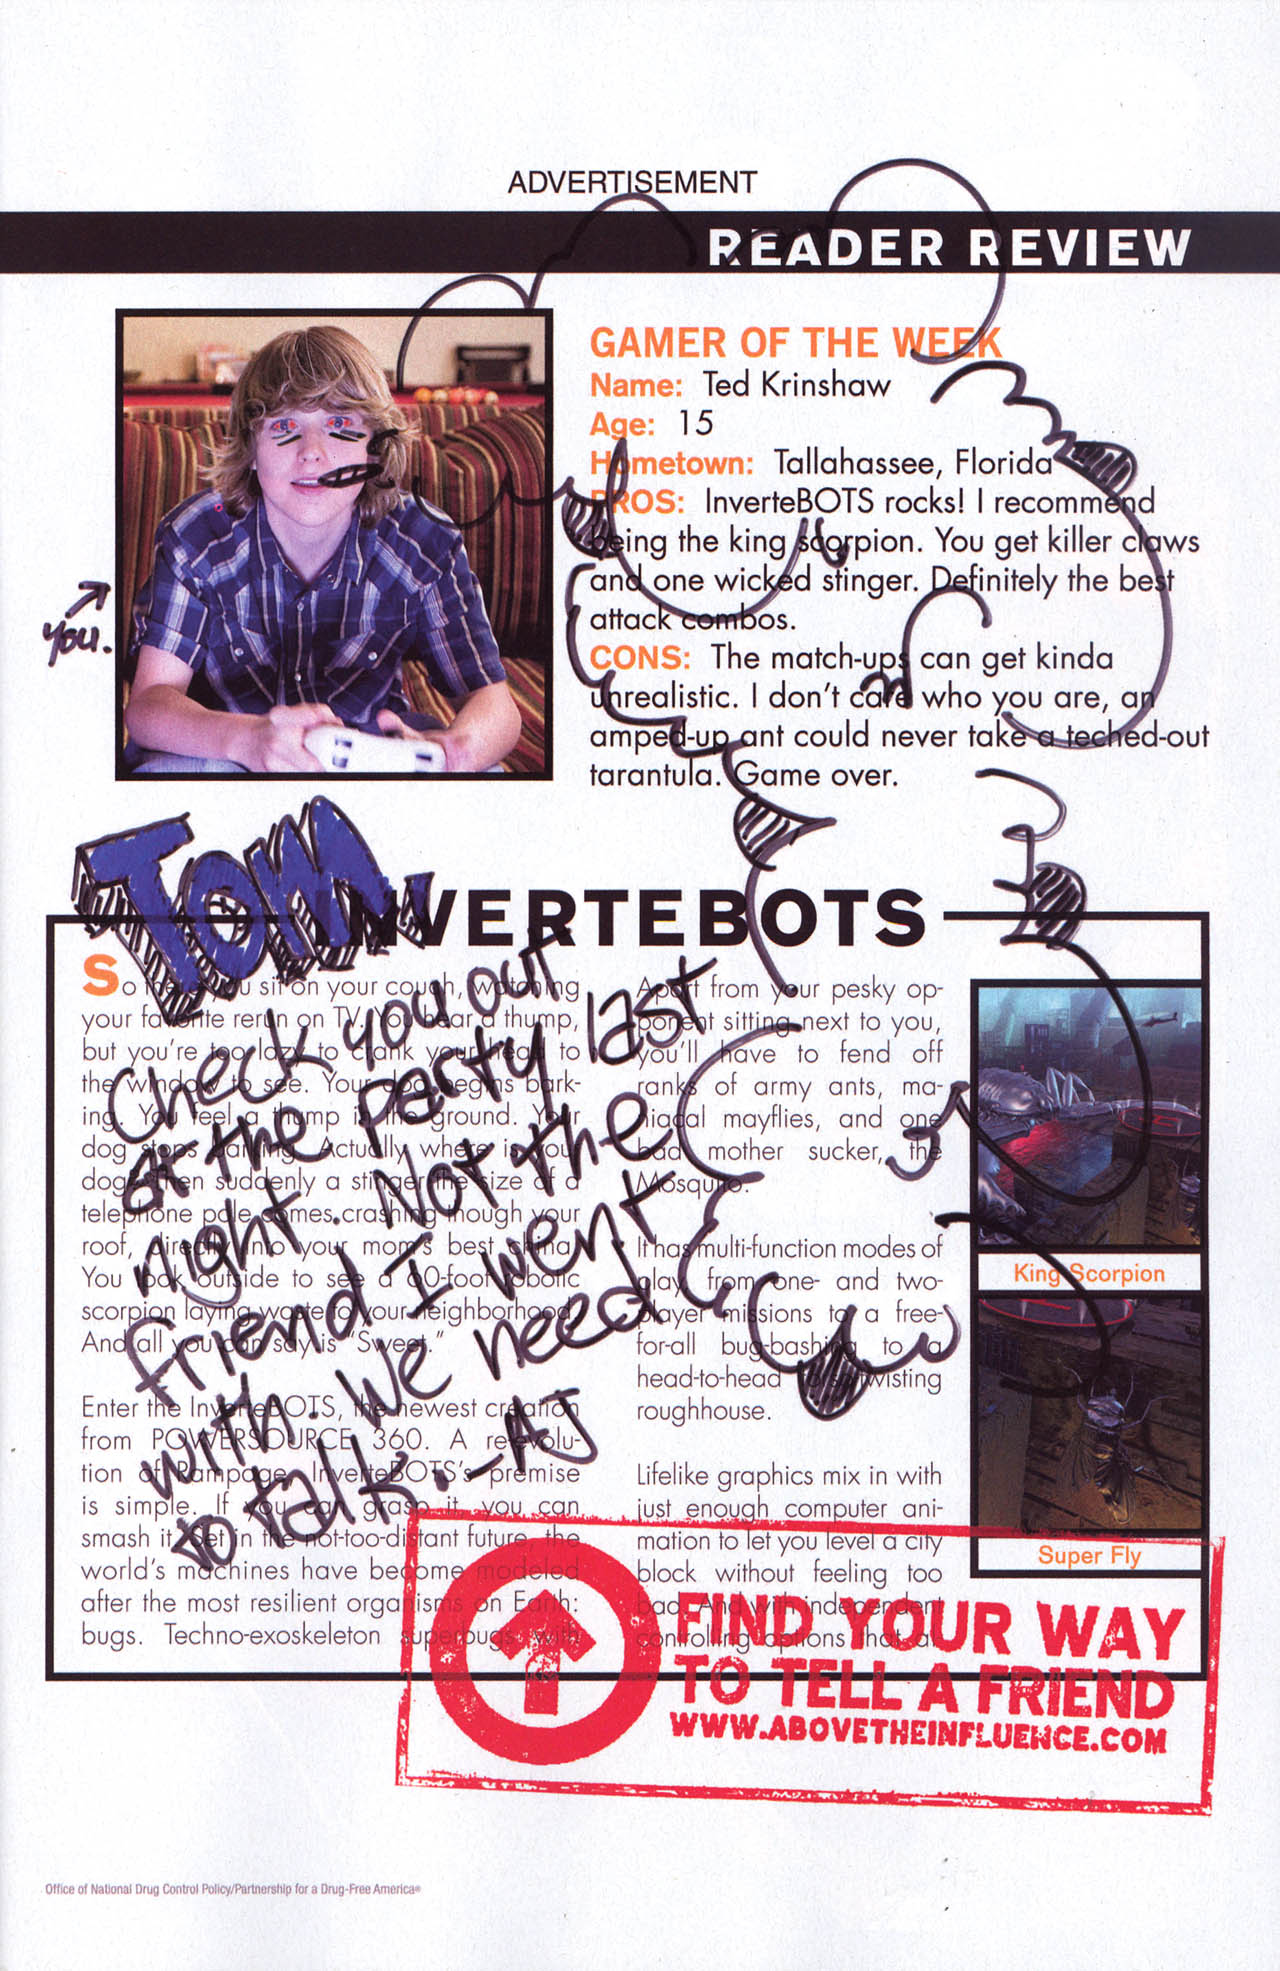 ADVERTISEMENT
READER REVIEW
GAMER OF THE WEEK
Name: Ted Krinshaw
Age: 15
Hometown: Tallahassee, Florida
PROS: InverteBOTS rocks! I recommend
being the king scorpion. You get killer claws
and one wicked stinger. Definitely the best
attack combos.
CONS: The match-ups can get kinda
unrealistic. I don't care who you are, an
amped-up ant could never take a teched-out
tarantula. Game over.
you.
TOM,
Check you out
at the party last
night. Not the
friend I went
with. We need
to talk. –AJ
INVERTEBOTS
So there you sit on your couch, watching
your favorite rerun on TV. You hear a thump,
but you're too lazy to crank your head to
the window to see. Your dog begins bark-
ing. You feel a thump in the ground. Your
dog stops barking. Actually where is your
dog? Then suddenly a stinger the size of a
telephone pole comes crashing though your
roof, directly into your mom's best china.
You look outside to see a 60-foot robotic
scorpion laying waste to your neighborhood.
And all you can say is "Sweet."
Enter the InverteBOTS, the newest creation
from POWERSOURCE 360. A re-evolu-
tion of Rampage, InverteBOTS's premise
is simple. If you can grasp it, you can
smash it. Set in the not-too-distant future, the
world's machines have become modeled
after the most resilient organisms on Earth:
bugs. Techno-exoskeleton superbugs with
Apart from your pesky op-
ponent sitting next to you,
you'll have to fend off
ranks of army ants, ma-
niacal mayflies, and one
bad mother sucker, the
Mosquito.
It has multi-function modes of
play from one- and two-
player missions to a free-
for-all bug-bashing to a
head-to-head twisting
roughhouse.
Lifelike graphics mix in with
just enough computer ani-
mation to let you level a city
block without feeling too
bad. And with independent
controlling options that al-
King Scorpion
Super Fly
FIND YOUR WAY
TO TELL A FRIEND
WWW.ABOVETHEINFLUENCE.COM
Office of National Drug Control Policy/Partnership for a Drug-Free America®